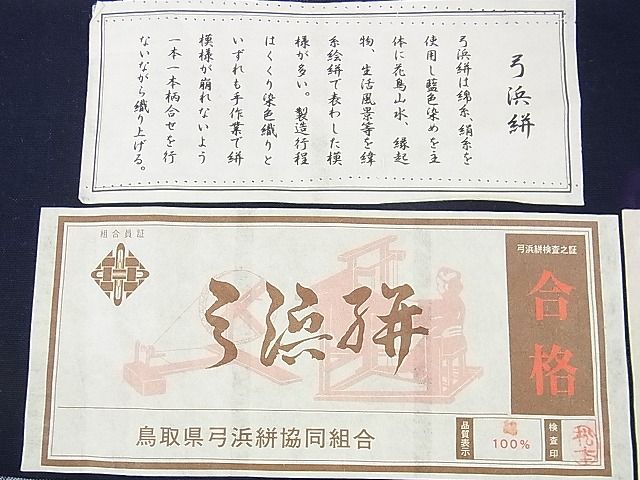 弓浜絣
弓浜絣は綿糸、絹糸を
使用し藍色染めを主
体に花鳥山水、縁起
物、生活風景等を緯
糸絵絣で表わした模
様が多い。製造行程
はくくり染色織りと
いずれも手作業で絣
模様が崩れないよう
一本一本柄合せを行
ないながら織り上げる。
組合員証
弓浜絣
弓浜絣検査之証
合格
鳥取県弓浜絣協同組合
品質表示
100%
検査印